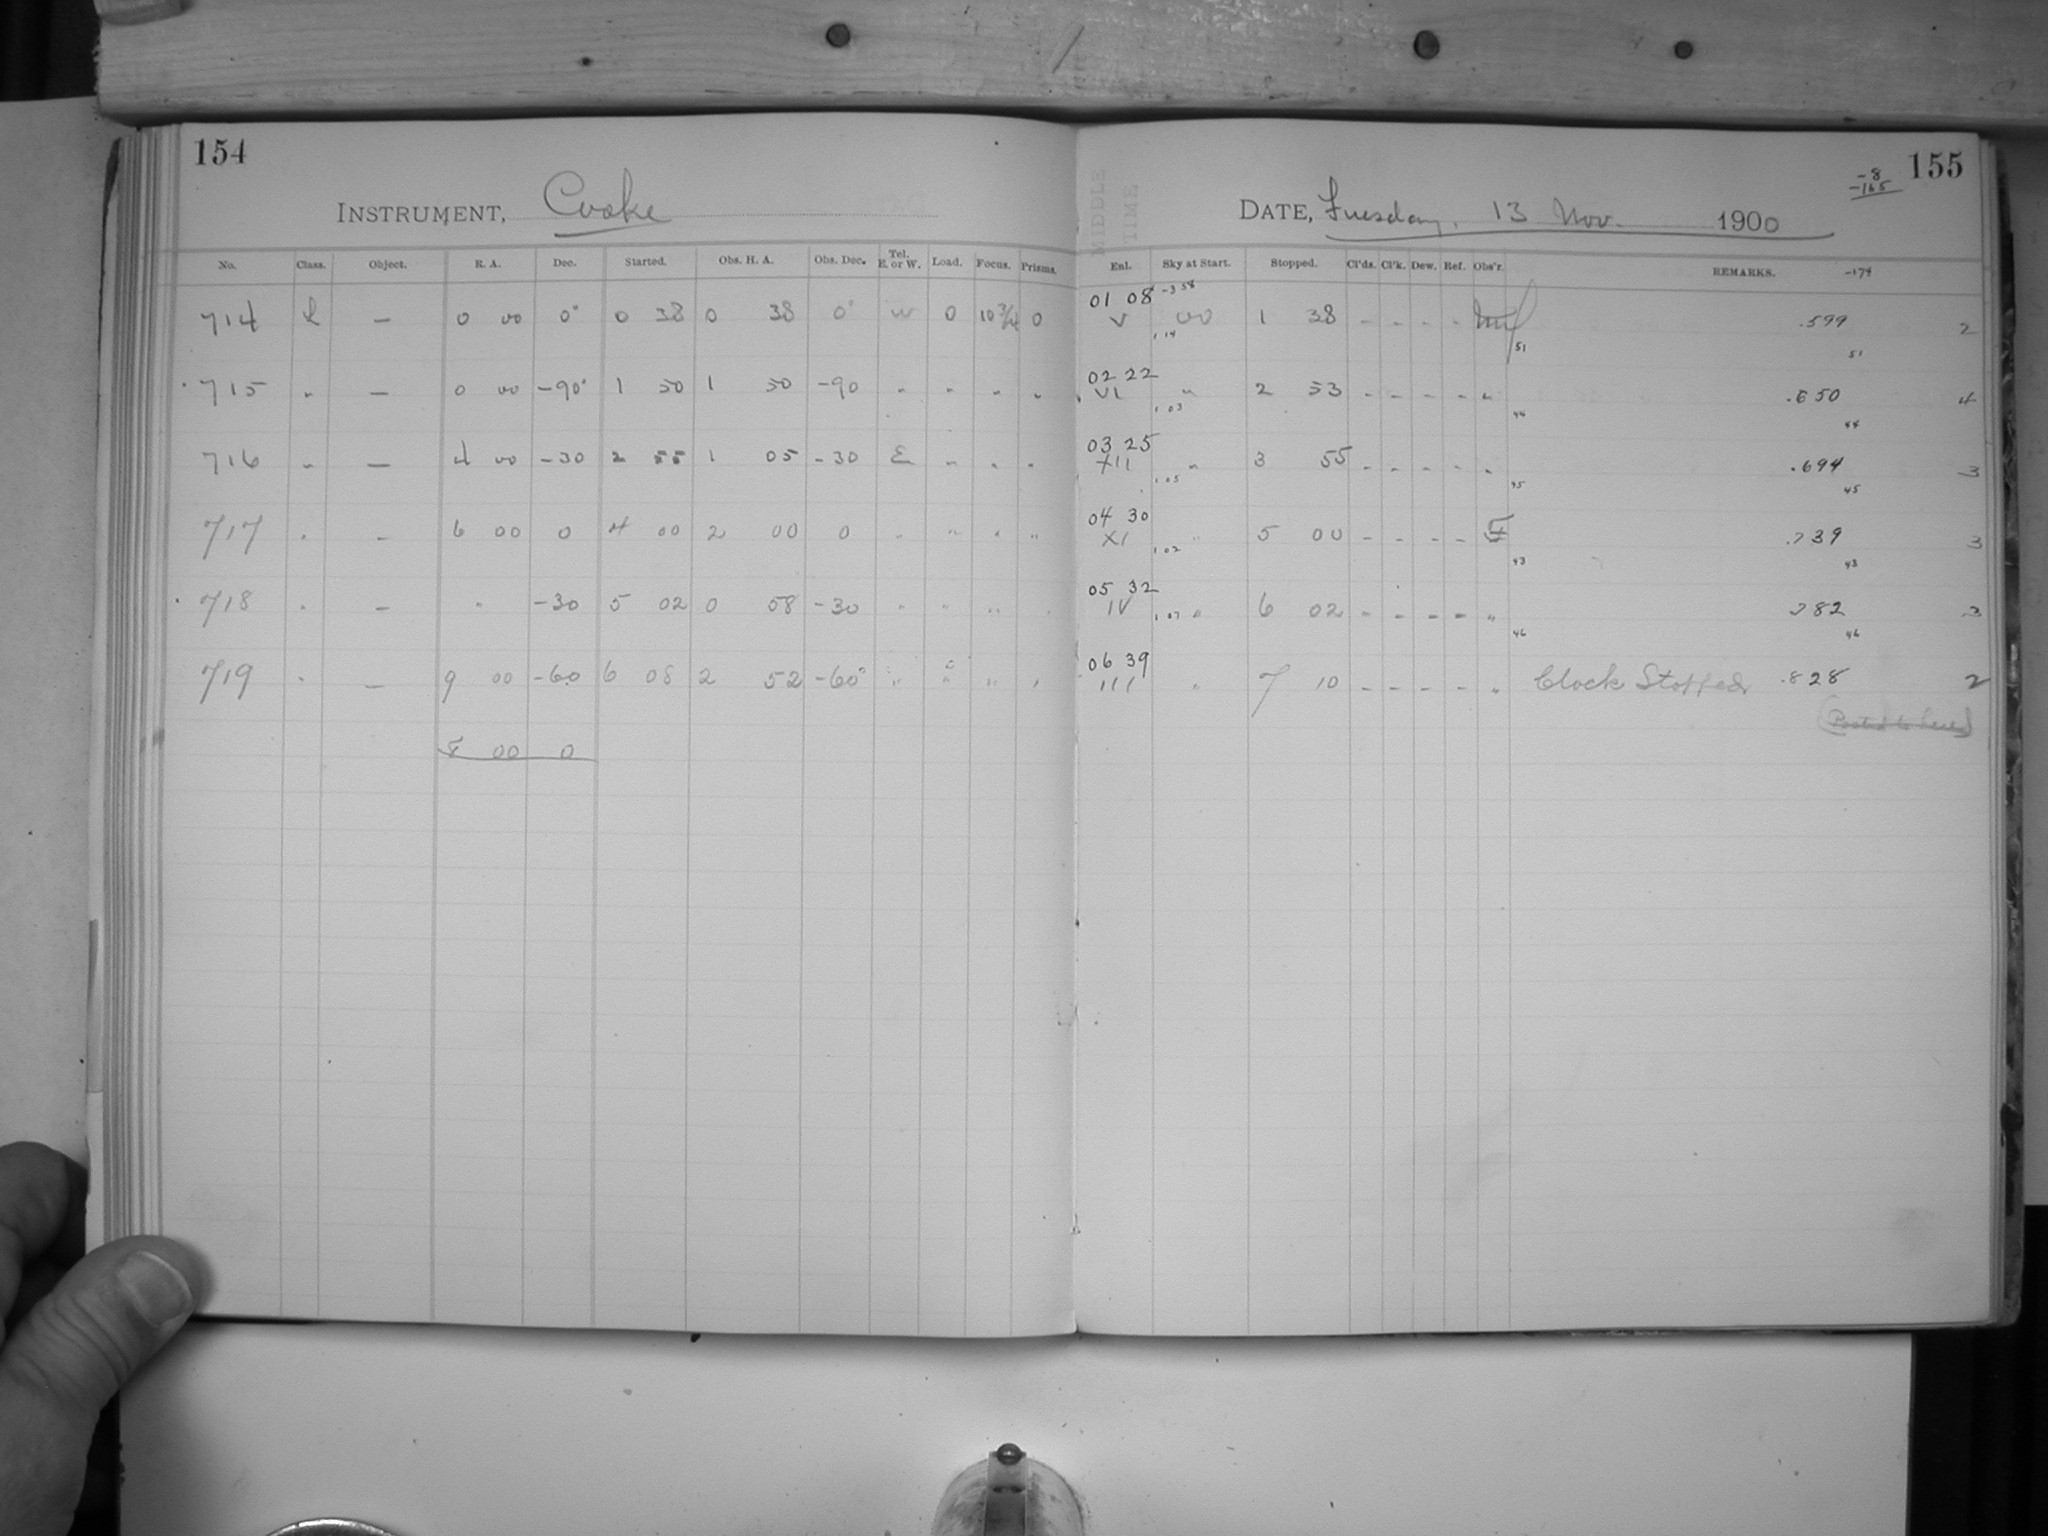 154
INSTRUMENT, Cooke
No. Class. Object. R. A. Dec. Started. Obs. H. A. Obs. Dec. Tel. E. or W. Load. Focus. Prisms.
714 L — 0 00 0° 0 38 0 38 0° W 0 10 3/4 0
715 " — 0 00 -90° 1 50 1 50 -90 " " " "
716 " — 4 00 -30 2 55 1 05 -30 E " " "
717 " — 6 00 0 4 00 2 00 0 " " " "
718 " — " -30 5 02 0 58 -30 " " " "
719 " — 9 00 -60 6 08 2 52 -60° " " " "
00 0
155
-8
-165
MIDDLE TIME
DATE, Tuesday, 13 Nov. 1900
Enl. Sky at Start. Stopped. Cl'ds. Cl'k. Dew. Ref. Obs'r. REMARKS. -174
01 08 -3 58
V 00 1 38 - - - - .599 2
1 14 51 51
02 22
VI " 2 53 - - - - " .650 4
1 03 44 44
03 25
XII " 3 55 - - - - " .694 3
1 05 45 45
04 30
XI " 5 00 - - - - .739 3
1 02 43 43
05 32
IV " 6 02 - - - - " .782 3
1 07 46 46
06 39
III " 7 10 - - - - " Clock Stopped .828 2
(Posted to here)